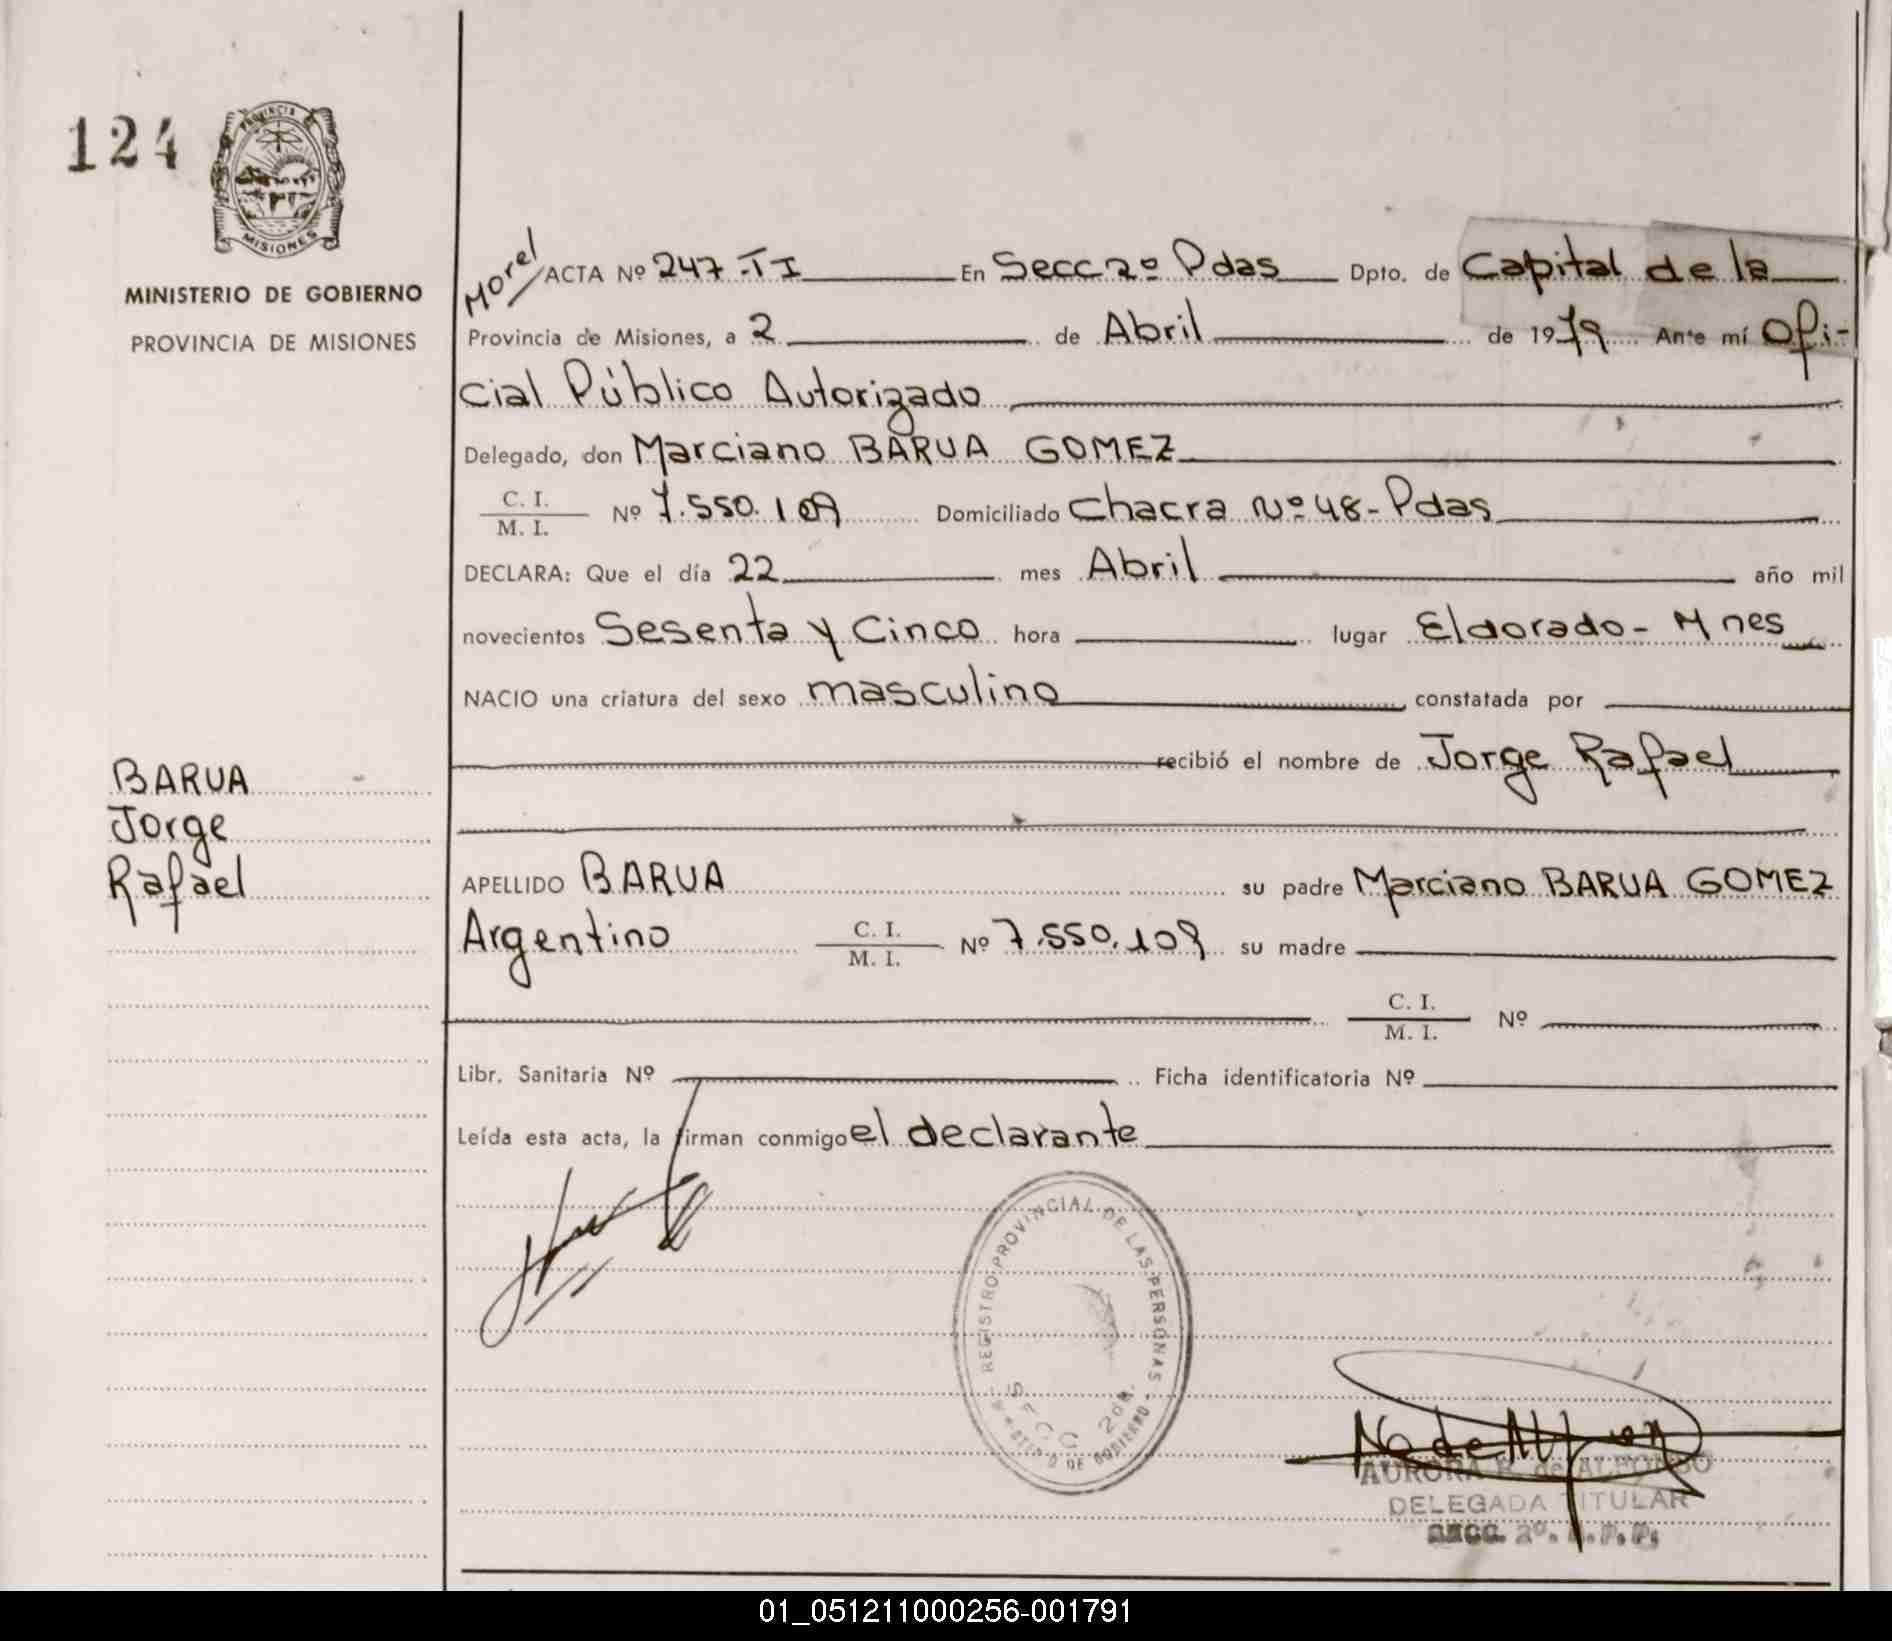 124
PROVINCIA
MISIONES
MINISTERIO DE GOBIERNO
PROVINCIA DE MISIONES
Morel
ACTA Nº 247-TI En Secc 2º Pdas Dpto. de Capital de la
Provincia de Misiones, a 2 de Abril de 1979 Ante mí Ofi-
cial Público Autorizado
Delegado, don Marciano BARUA GOMEZ
C. I.
M. I. Nº 7.550.109 Domiciliado Chacra Nº 48- Pdas
DECLARA: Que el día 22 mes Abril año mil
novecientos Sesenta y Cinco hora lugar Eldorado- Mnes
NACIO una criatura del sexo masculino constatada por
recibió el nombre de Jorge Rafael
BARUA
Jorge
Rafael
APELLIDO BARUA su padre Marciano BARUA GOMEZ
Argentino C. I. M. I. Nº 7.550.109 su madre
C. I. M. I. Nº
Libr. Sanitaria Nº Ficha identificatoria Nº
Leída esta acta, la firman conmigo el declarante
REGISTRO PROVINCIAL DE LAS PERSONAS
SECC 2da.
DE GOBIERNO
AURORA R. de ALFONSO
DELEGADA TITULAR
SECC. 2º.
01_051211000256-001791